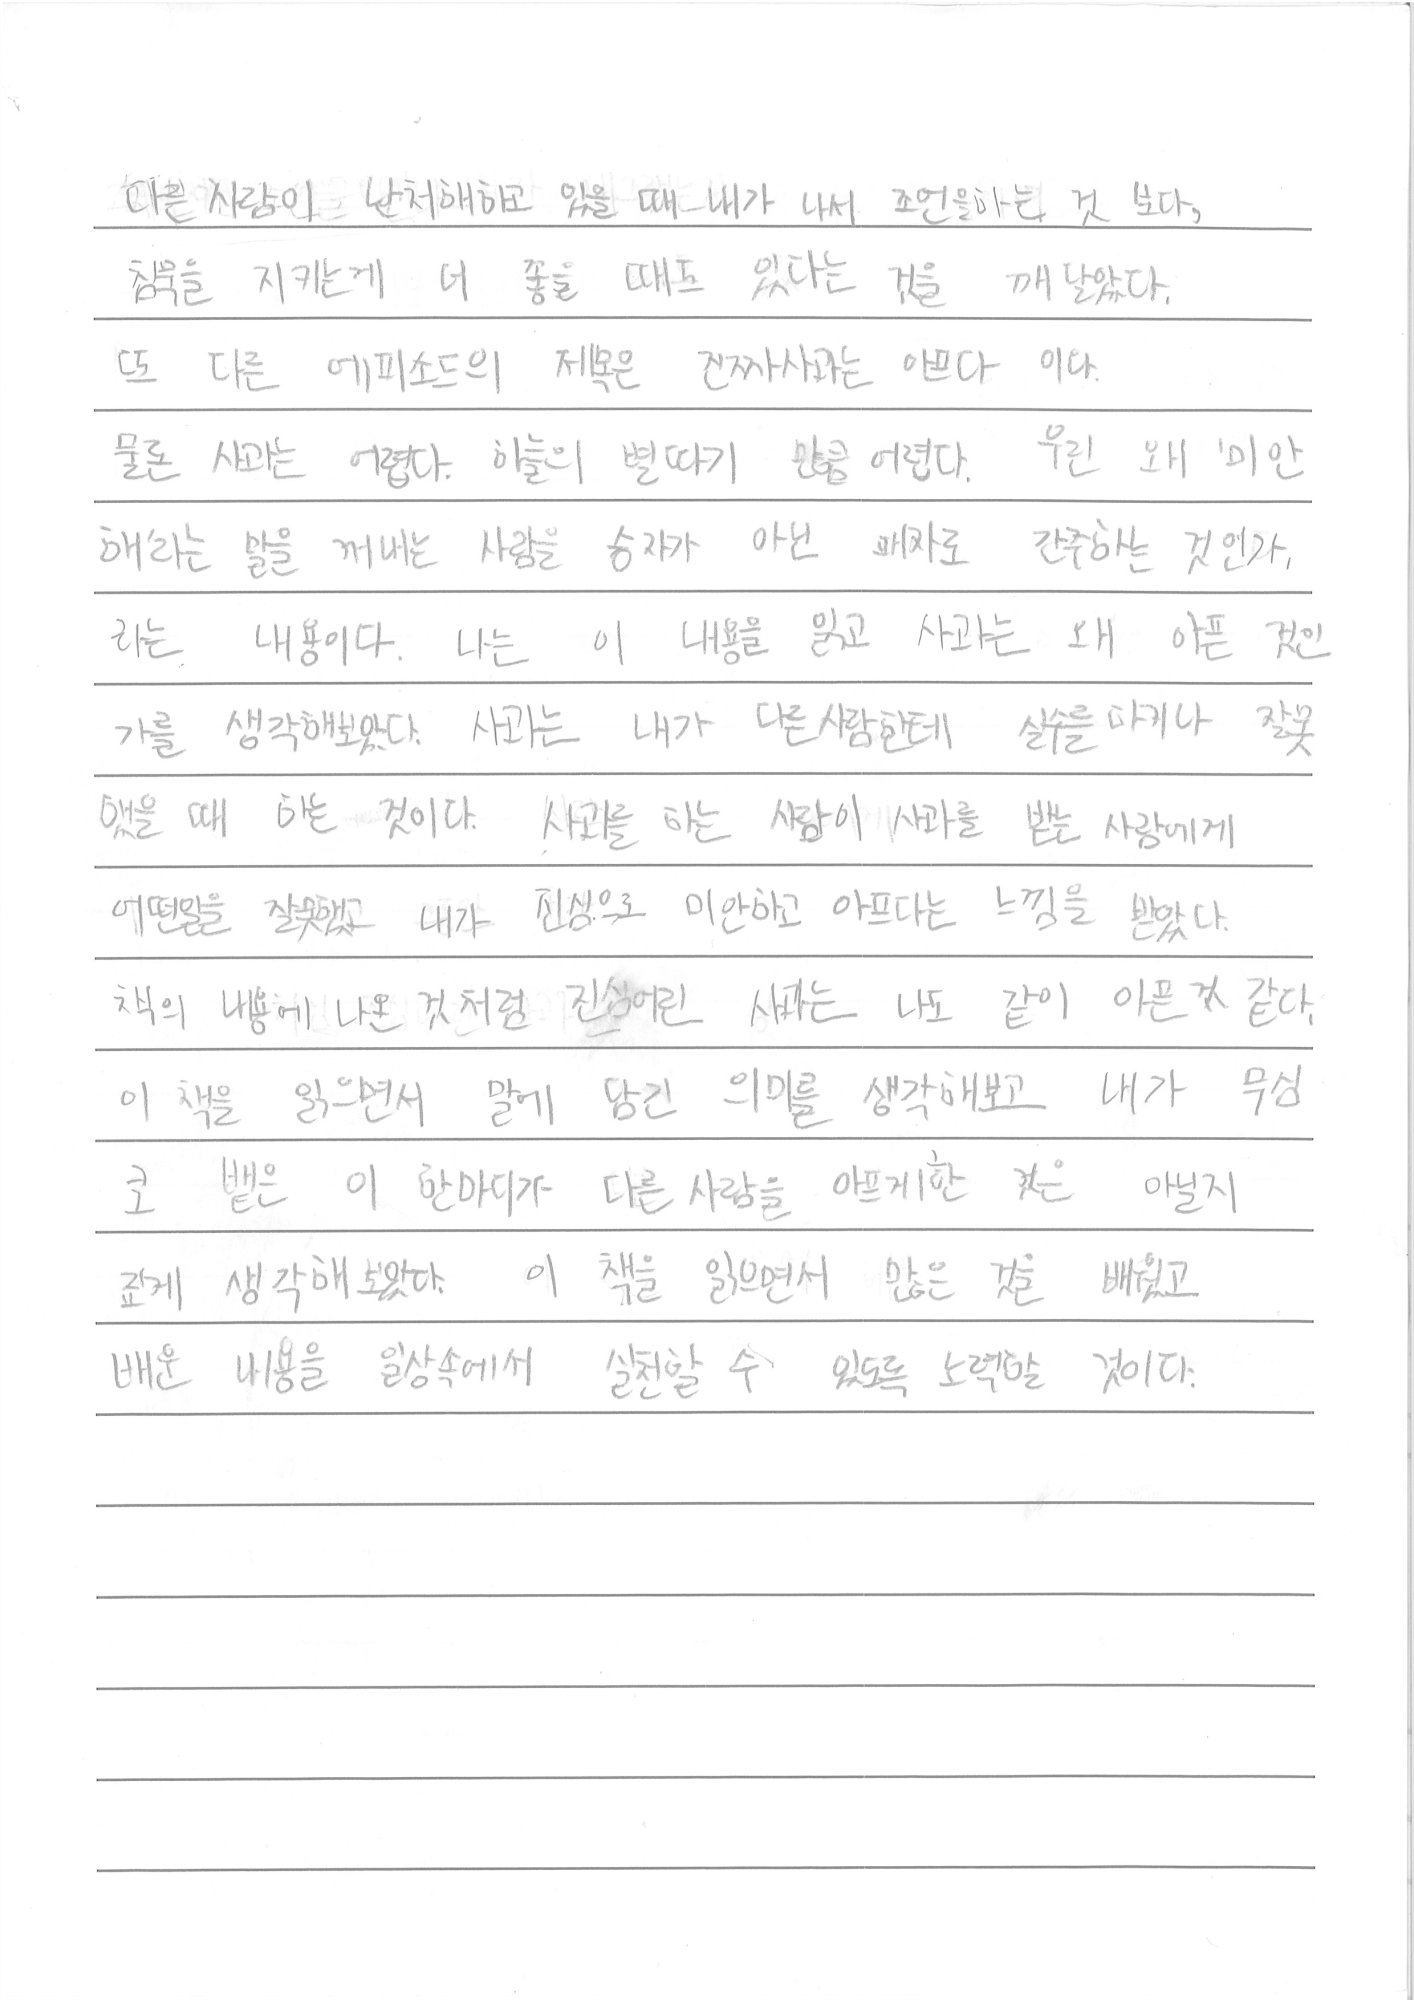 다른 사람이 난처해하고 있을 때 내가 나서 조언을하는 것 보다,
침묵을 지키는게 더 좋을 때도 있다는 것을 깨달았다.
또 다른 에피소드의 제목은 진짜사과는 아프다 이다.
물론 사과는 어렵다. 하늘의 별따기 만큼 어렵다. 우린 왜 '미안
해'라는 말을 꺼내는 사람을 승자가 아닌 패자로 간주하는 것인가,
라는 내용이다. 나는 이 내용을 읽고 사과는 왜 아픈 것인
가를 생각해보았다. 사과는 내가 다른사람한테 실수를 하거나 잘못
했을 때 하는 것이다. 사과를 하는 사람이 사과를 받는 사람에게
어떤말을 잘못했고 내가 진심으로 미안하고 아프다는 느낌을 받았다.
책의 내용에 나온 것처럼 진심어린 사과는 나도 같이 아픈것 같다.
이 책을 읽으면서 말에 담긴 의미를 생각해보고 내가 무심
코 뱉은 이 한마디가 다른 사람을 아프게 한 것은 아닐지
생각해 보았다. 이 책을 읽으면서 많은 것을 배웠고
배운 내용을 일상속에서 실천할 수 있도록 노력할 것이다.